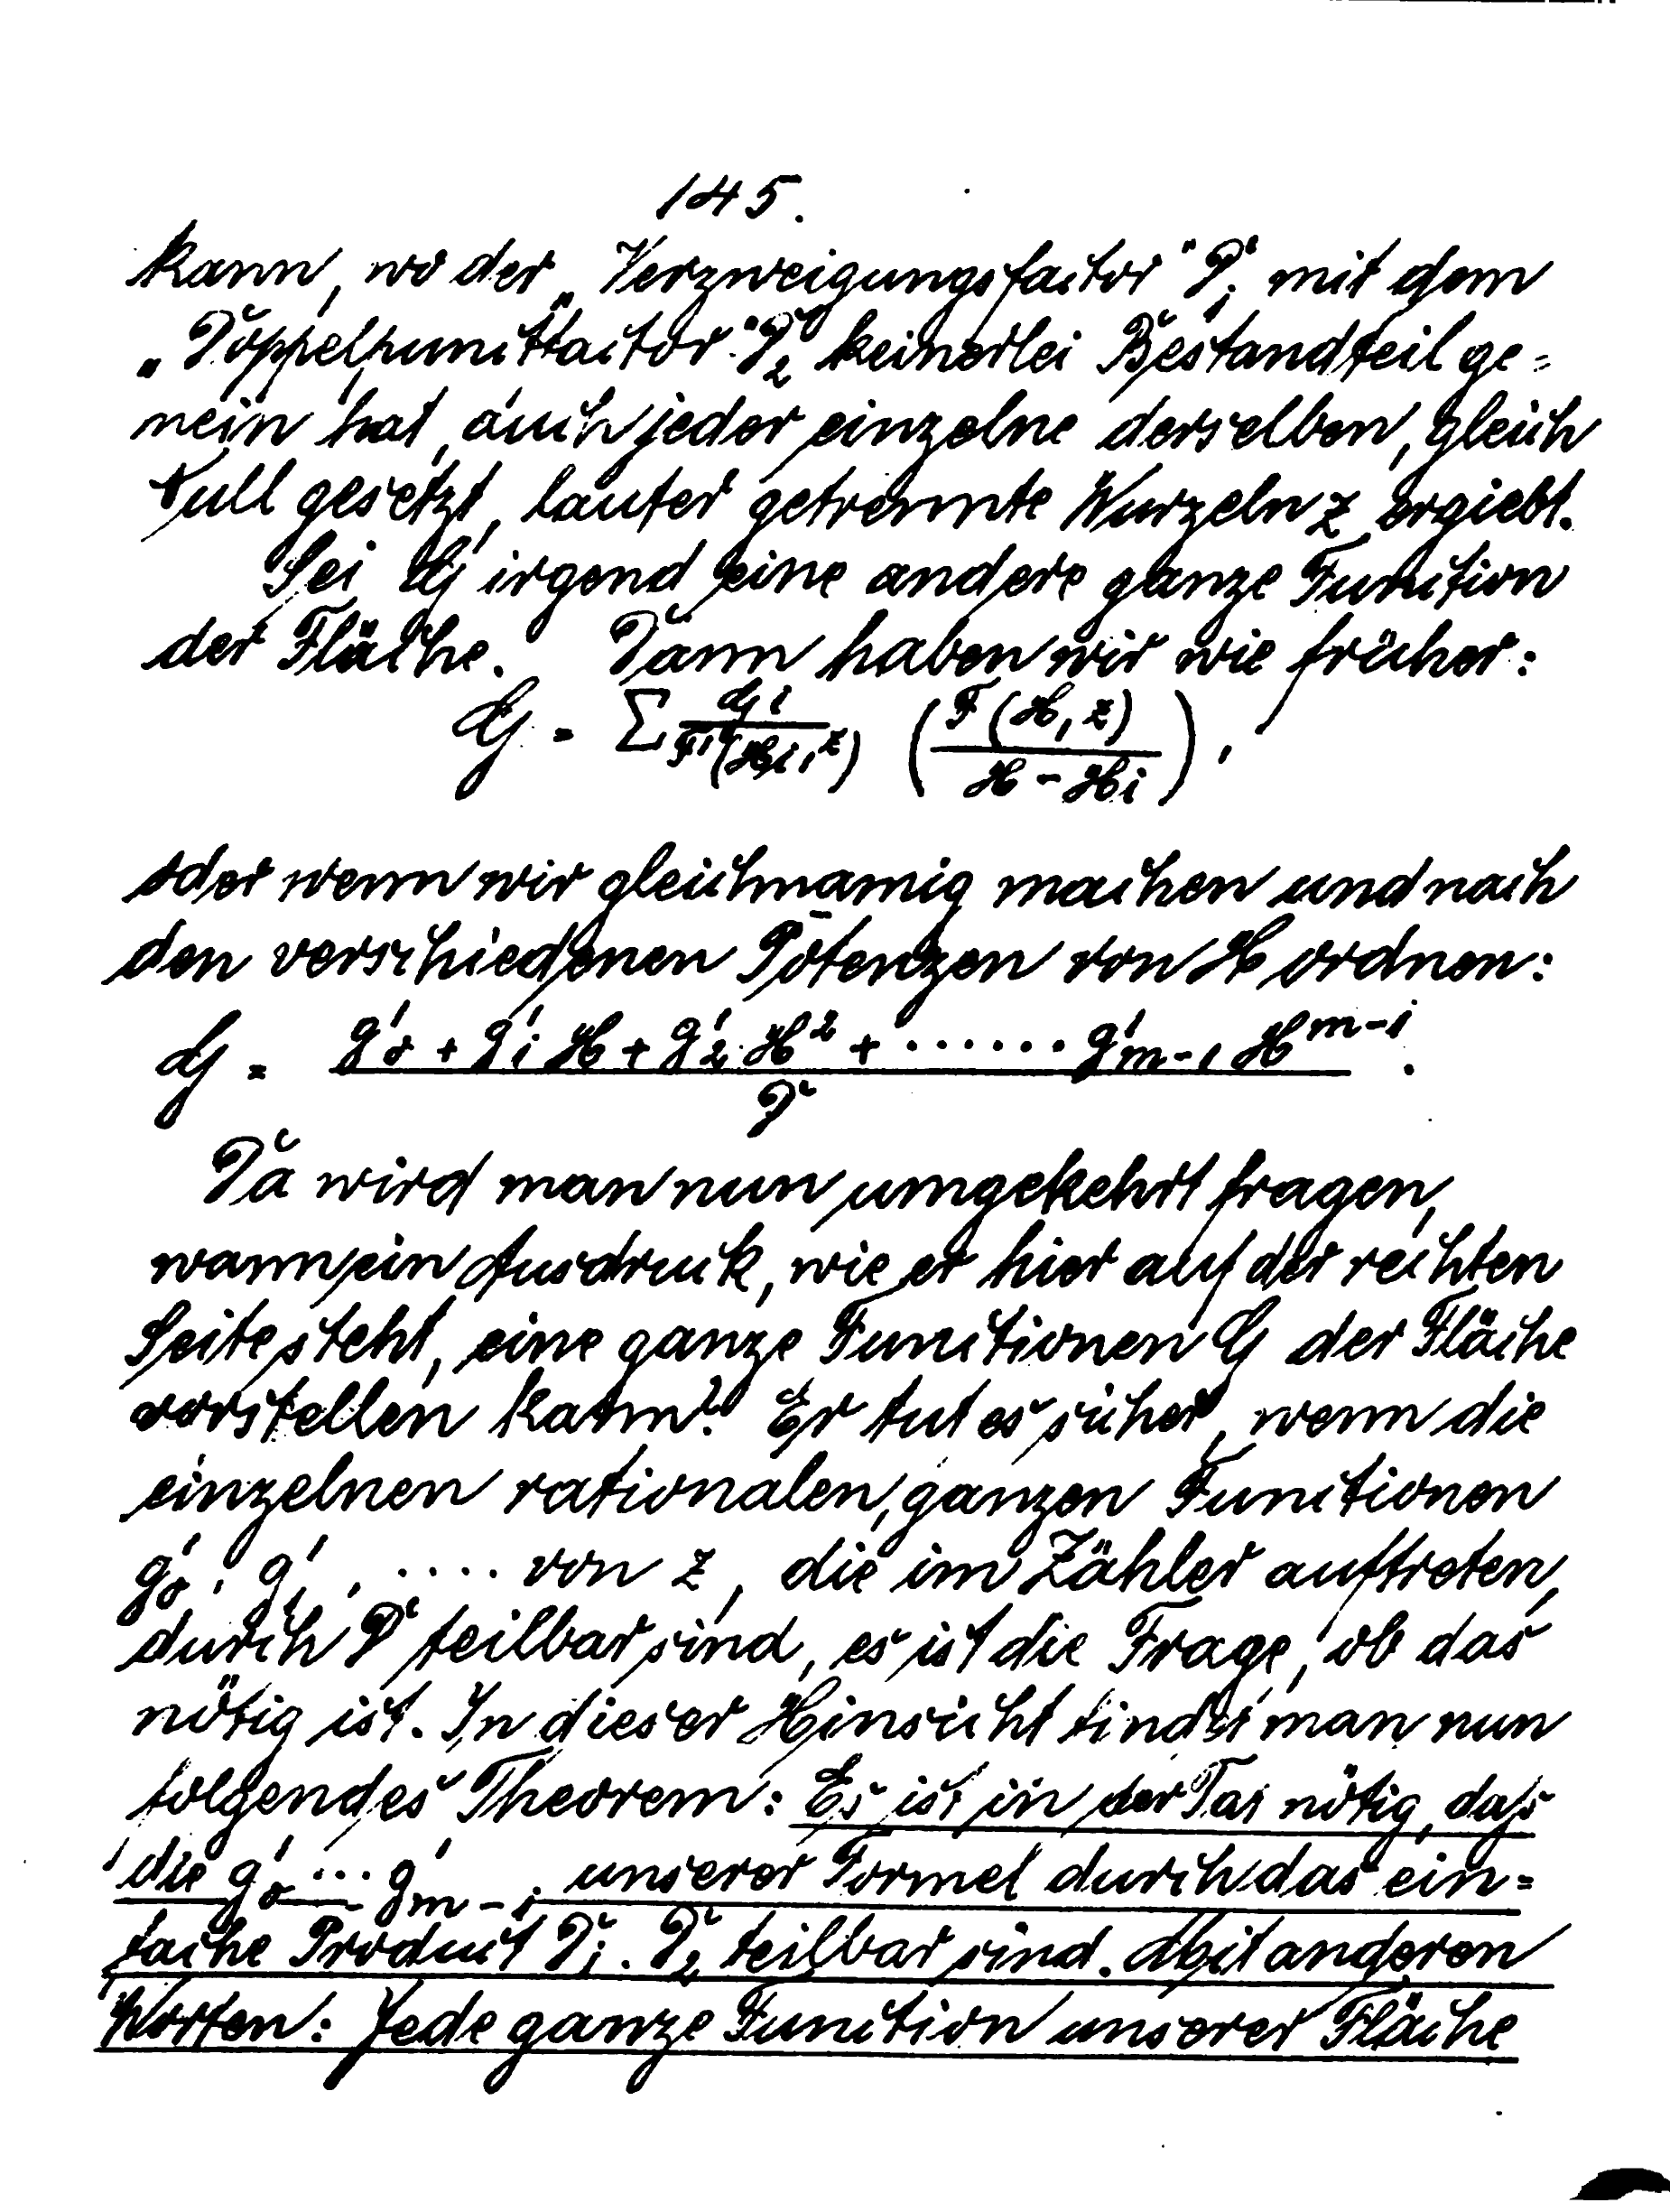 145.
kann, wo der „Verzweigungsfactor" D₁ mit dem
„Doppelpunctfactor" D₂ keinerlei Bestandteil ge=
mein hat, auch jeder einzelne derselben, gleich
Null gesetzt, lauter getrennte Wurzeln z ergiebt.
Sei G irgend eine andere ganze Function
der Fläche. Dann haben wir wie früher:
G = Σ Gi / F'(Hi, z) (F(H, z) / H - Hi),
oder wenn wir gleichnamig machen und nach
den verschiedenen Potenzen von H ordnen:
G = g'₀ + g'₁ H + g'₂ H² + ...... g'm-1 H^m-1 / D.
Da wird man nun umgekehrt fragen,
wann ein Ausdruck, wie er hier auf der rechten
Seite steht, eine ganze Functionen G der Fläche
vorstellen kann? Er tut es sicher, wenn die
einzelnen rationalen, ganzen Functionen
g'₀, g'₁, .... von z, die im Zähler auftreten,
durch D teilbar sind, es ist die Frage, ob das
nötig ist. In dieser Hinsicht findet man nun
folgendes Theorem: Es ist in der Tat nötig, daß
die g'₀ ... g'm-1 unserer Formel durch das ein=
fache Product D₁ . D₂ teilbar sind. Mit anderen
Worten: Jede ganze Function unserer Fläche